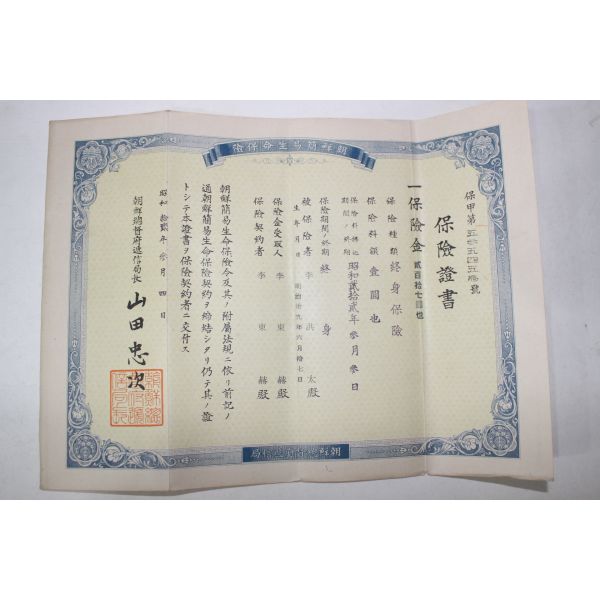 朝鮮簡易生命保險
保甲第
保險證書
一保險金 貳百拾七圓也
保險種類 終身保險
保險料額 壹圓也
保險料拂込期間ノ終期 昭和貳拾貳年 參月 參日
保險期間ノ終期 終身
被保險者 李 洪 太殿
生年月日 明治 年六月拾七日
保險金受取人 李 東 赫殿
保險契約者 李 東 赫殿
朝鮮簡易生命保險令及其ノ附屬法規ニ依リ前記ノ
通朝鮮簡易生命保險契約ヲ締結シタリ仍テ其ノ證
トシテ本證書ヲ保險契約者ニ交付ス
昭和 拾貳年 參月 四日
朝鮮總督府遞信局長 山田忠次
朝鮮總督府遞信局